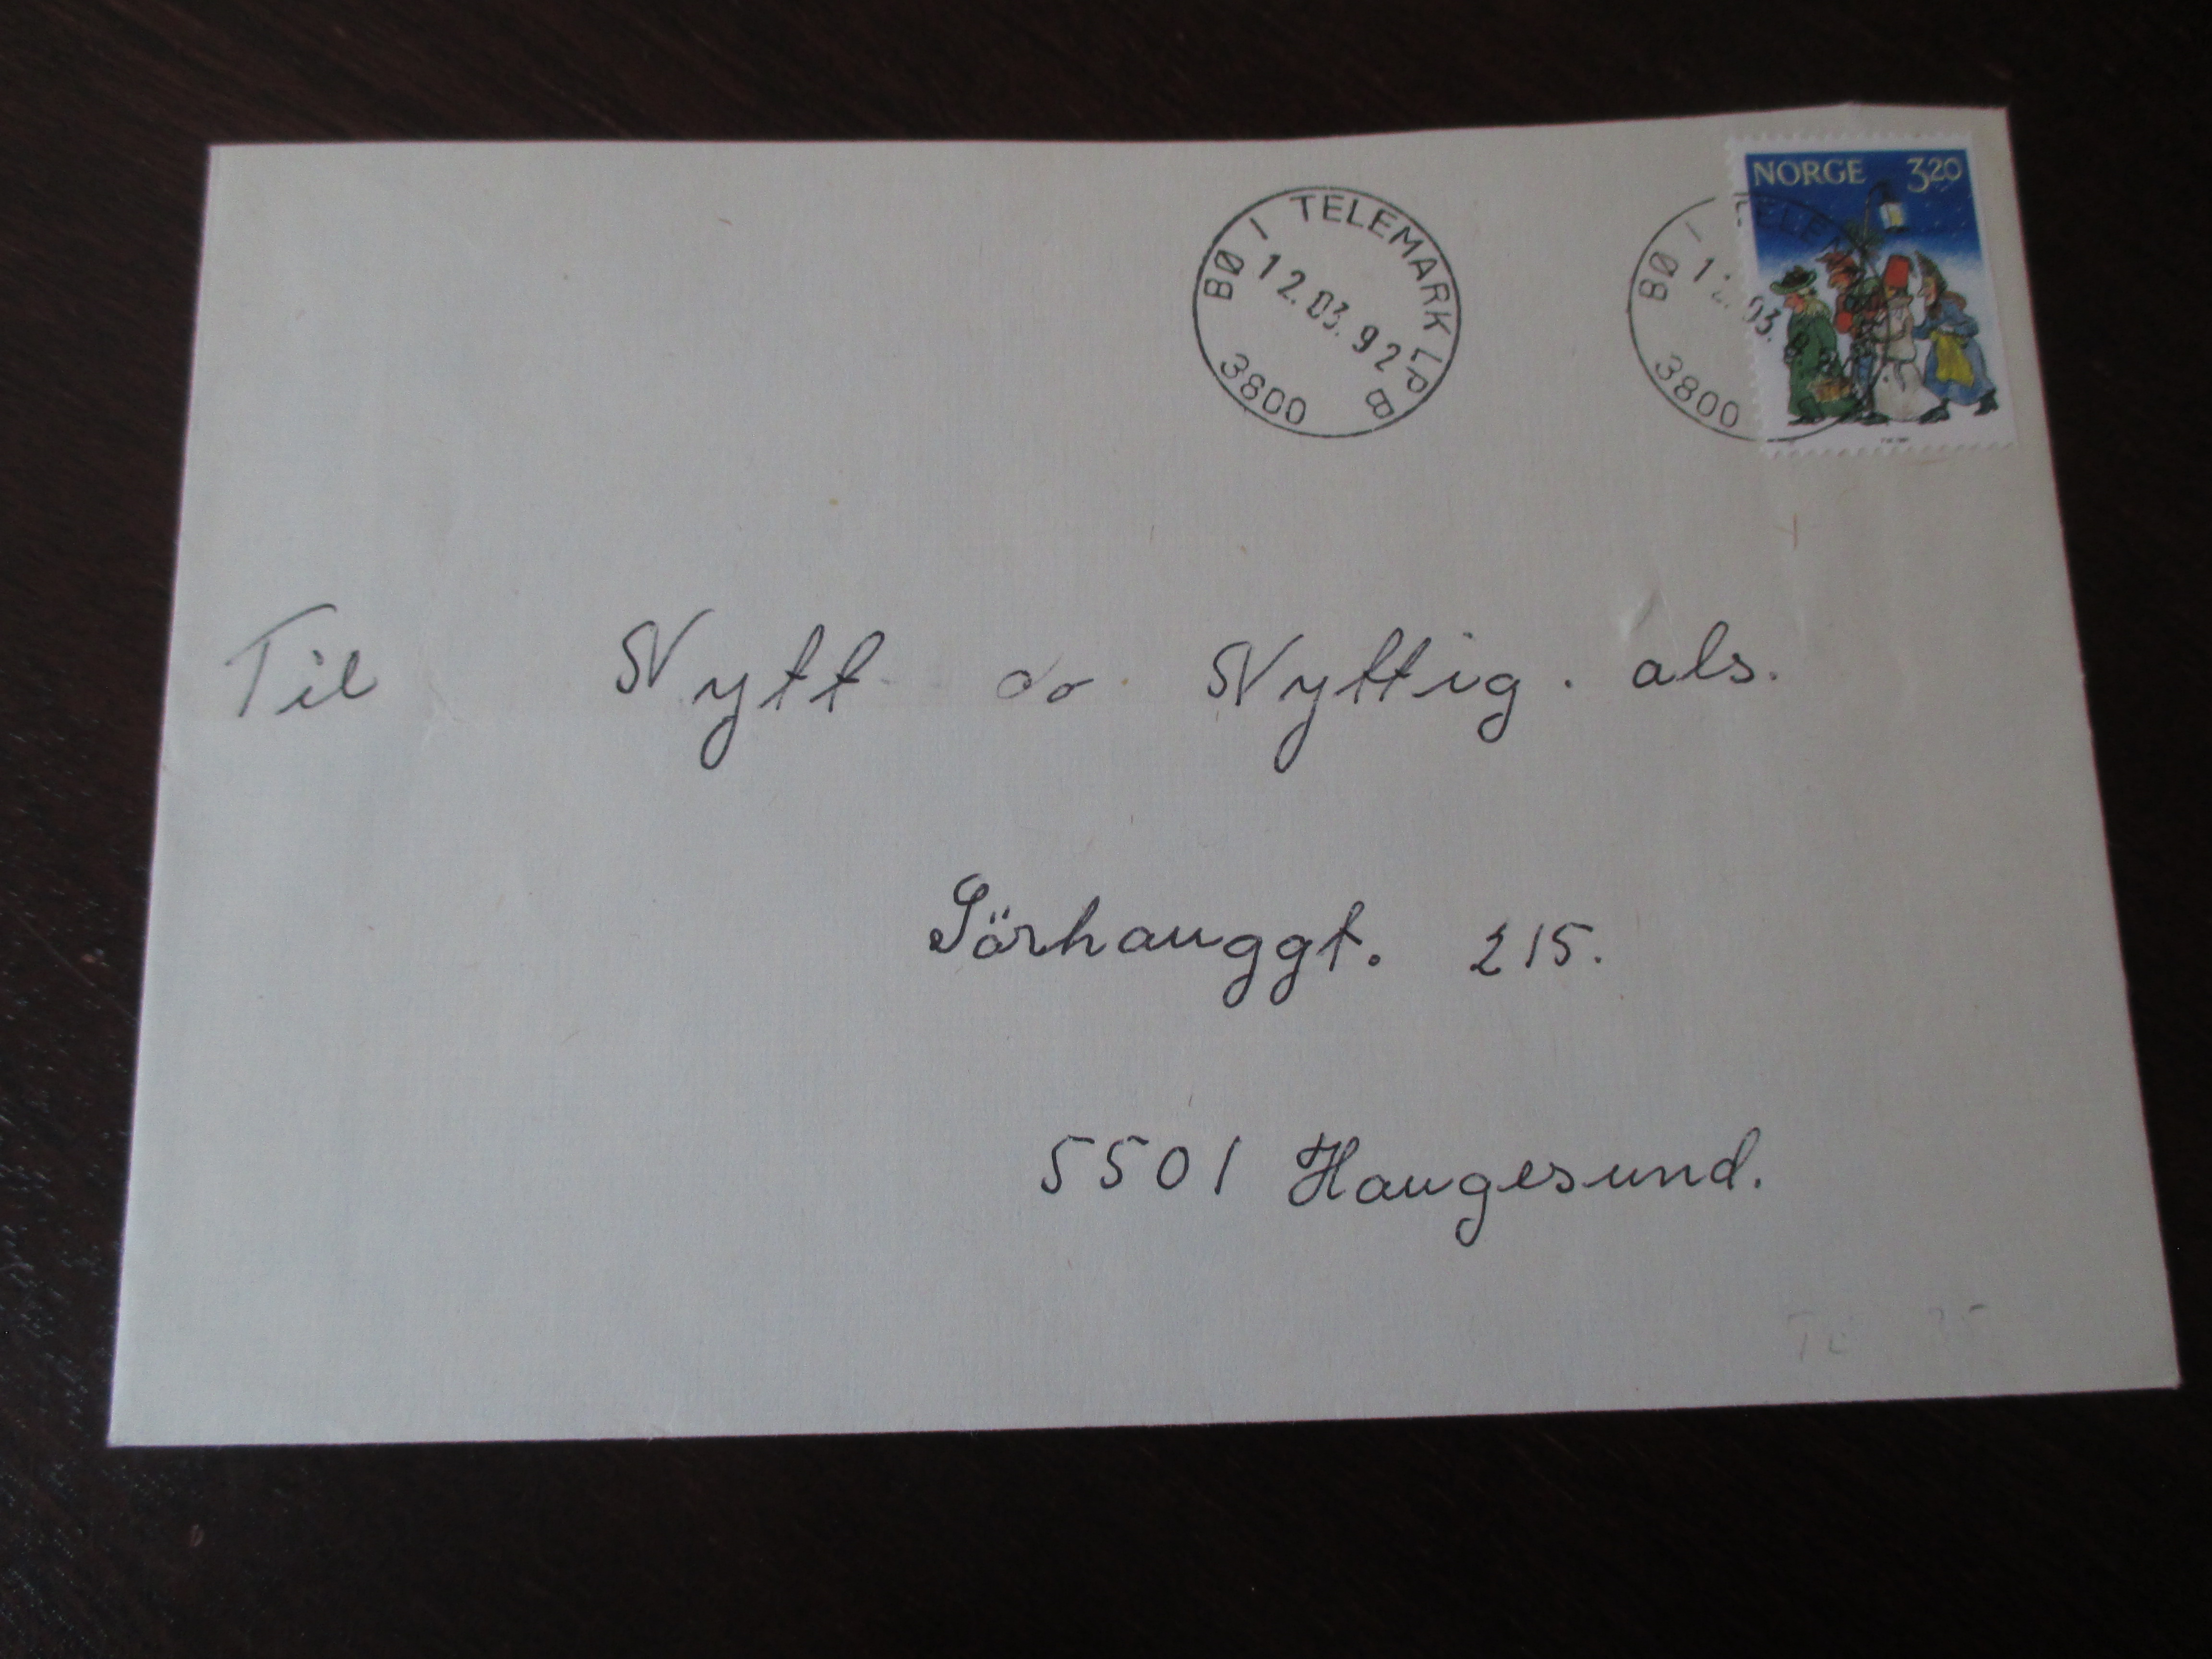 NORGE 3.20
BØ I TELEMARK LP B
12.03.92
3800
BØ I TELEM
12.03.
3800
Til Nytt & Nyttig. als.
Sörhauggt. 215.
5501 Haugesund.